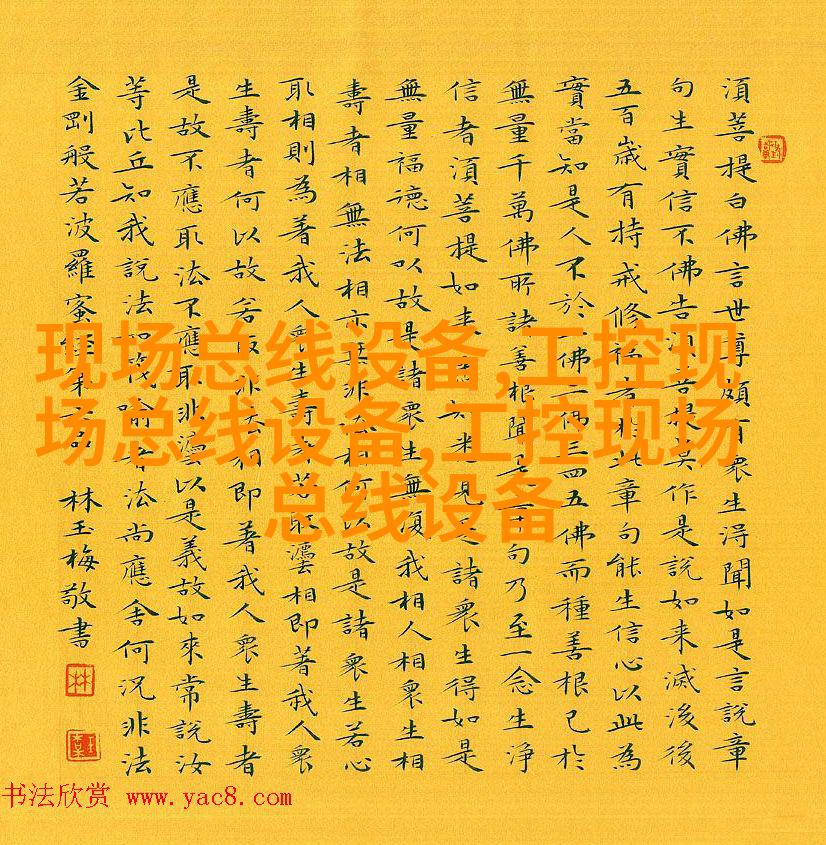 湏菩提白佛言世尊頗有衆生淂聞如是言說章
句生實信不佛告湏菩提莫作是說如来滅後後
五百歳有持戒修福者於此章句能生信心以此為
實當知是人不於一佛二佛三四五佛而種善根已於
無量千萬佛所諸善根聞是章句乃至一念生淨
信者湏菩提如来悉知悉見是諸衆生得如是
無量福德何以故是諸衆生無復我相人相衆生相
壽者相無法相亦無非法相何以故是諸衆生若心
取相則為著我人衆生壽者若取灋相即著我人衆
生壽者何以故若取非法相即著我人衆生壽者
是故不應取法不應取非灋以是義故如來常說汝
等比丘知我說法如筏喻者法尚應舍何況非法
金剛般若波羅蜜經第六品 林玉梅敬書
林
现场总线设备,工控现
场总线设备,工控现场
总线设备
书法欣赏 www.yac8.com